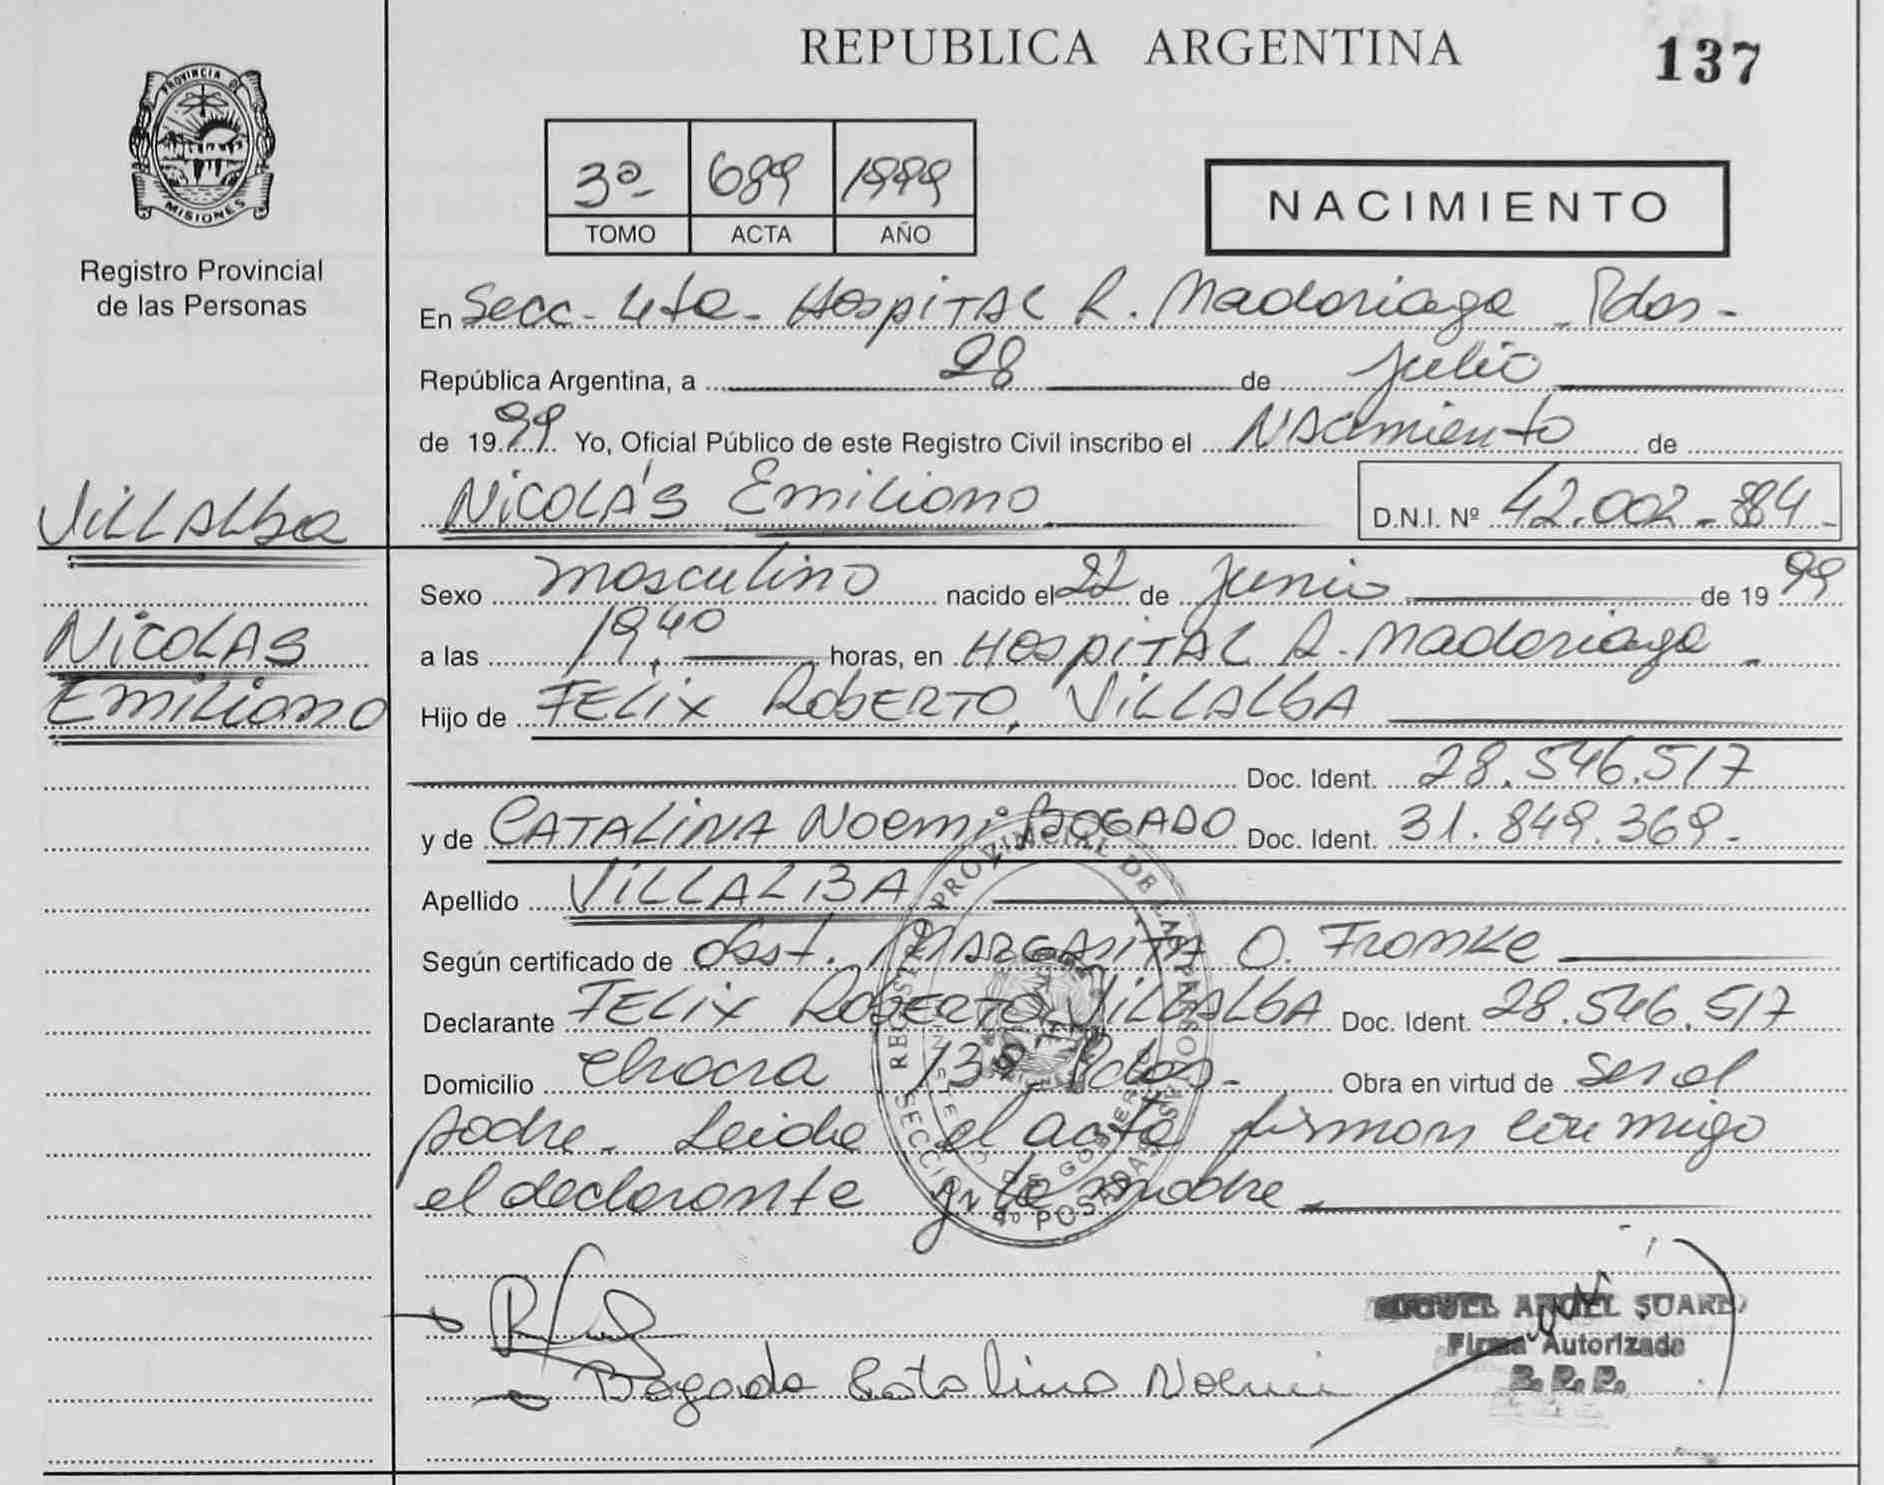 REPUBLICA ARGENTINA
137
PROVINCIA DE
MISIONES
Registro Provincial
de las Personas
3º- 689 1999
TOMO ACTA AÑO
NACIMIENTO
En Secc- 4ta- Hospital R. Madariaga - Pdas -
República Argentina, a 28 de Julio
de 1999 Yo, Oficial Público de este Registro Civil inscribo el Nacimiento de
Nicolás Emiliano D.N.I. Nº 42.002-884-
Villalba
Nicolas
Emiliano
Sexo masculino nacido el 22 de Junio de 1999
a las 19,40 horas, en Hospital R. Madariaga -
Hijo de FELIX ROBERTO, VILLALBA
Doc. Ident. 28.546.517
y de CATALINA Noemi BOGADO Doc. Ident. 31.849.369-
Apellido VILLALBA
Según certificado de Obst. MARGARITA O. Fromke
Declarante FELIX ROBERTO VILLALBA Doc. Ident. 28.546.517
Domicilio Chacra Pdas- Obra en virtud de ser el
padre- Leida el acta firman conmigo
el declarante y la madre
REGISTRO PROVINCIAL DE LAS PERSONAS
SECCION 4º POSADAS
Bogado Catalina Noemi
MIGUEL ANGEL SUAREZ
Firma Autorizada
R. P. P.